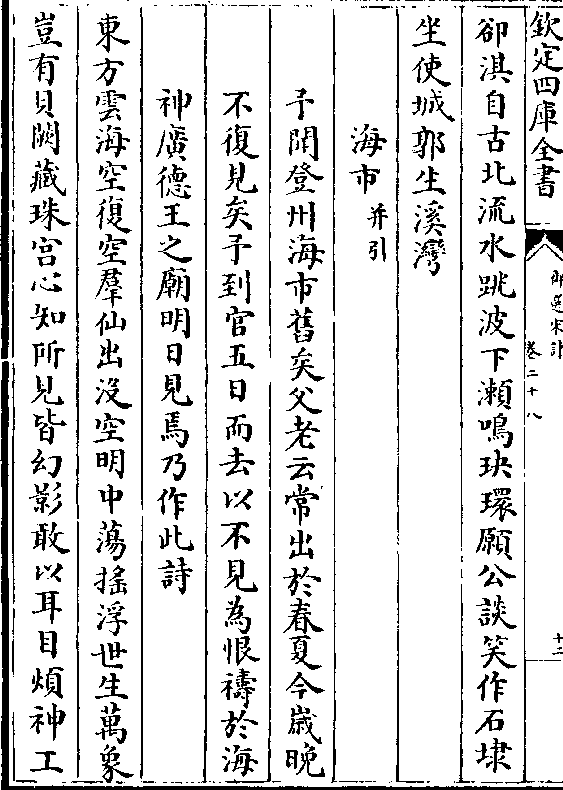 欽定四庫全書
御選宋詩
卷二十八
十二
卻淇自古北流水跳波下瀨鳴玦環願公談笑作石埭
坐使城郭生溪灣
海市并引
予聞登州海市舊矣父老云常出於春夏今歲晚
不復見矣予到官五日而去以不見為恨禱於海
神廣德王之廟明日見焉乃作此詩
東方雲海空復空羣仙出沒空明中蕩搖浮世生萬象
豈有貝闕藏珠宫心知所見皆幻影敢以耳目煩神工